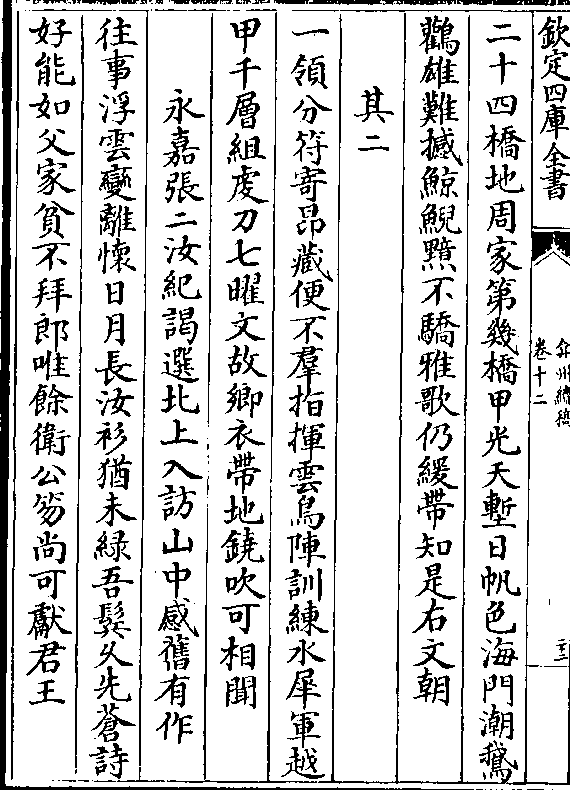 欽定四庫全書
弇州續稿
卷十二
二十四橋地周家第幾橋甲光天塹日帆色海門潮鵞
鸛雄難撼鯨鯢黥不驕雅歌仍緩帶知是右文朝
其二
一領分符寄昂藏便不羣指揮雲鳥陣訓練水犀軍越
甲千層組虔刀七曜文故鄉衣帶地鐃吹可相聞
永嘉張二汝紀謁選北上入訪山中感舊有作
往事浮雲變離懷日月長汝衫猶未緑吾鬂久先蒼詩
好能如父家貧不拜郎唯餘衛公笏尚可獻君王